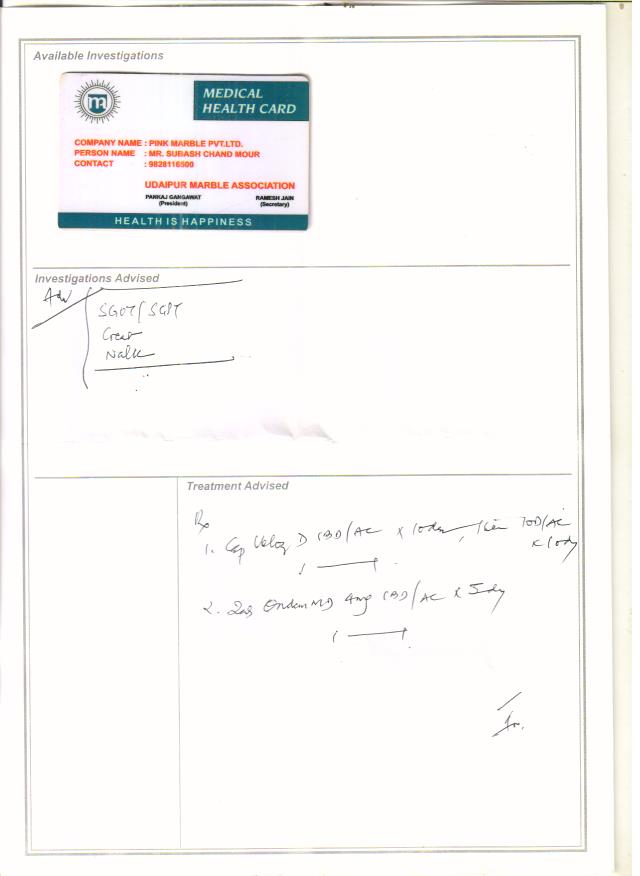 Available Investigations
MEDICAL
HEALTH CARD
COMPANY NAME : PINK MARBLE PVT.LTD.
PERSON NAME : MR. SUBASH CHAND MOUR
CONTACT : 9828116500
UDAIPUR MARBLE ASSOCIATION
PANKAJ GANGAWAT
(President)
RAMESH JAIN
(Secretary)
HEALTH IS HAPPINESS
Investigations Advised
Adv
SGOT/SGPT
Creat
Na/K
Treatment Advised
Rx
1. Cap Veloz D 1BD/AC x 10day, 1OD/AC
x 10dy
2. Ondem MD 4mg 1BD/AC x 5dy